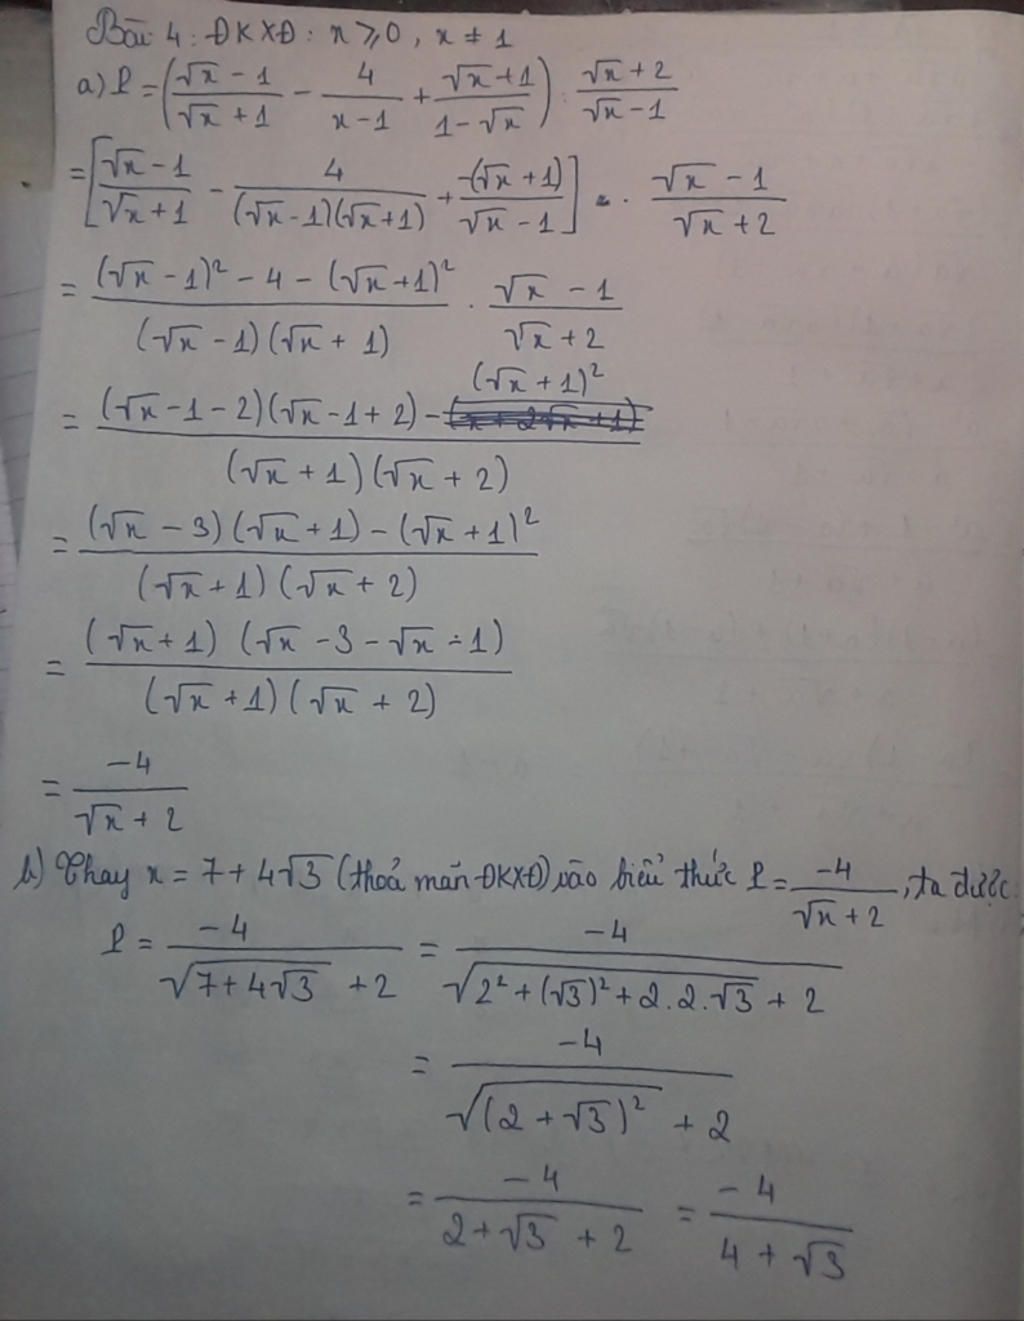 Bài 4: ĐKXĐ: x ⩾ 0, x ≠ 1
a) P = ((√x - 1)/(√x + 1) - 4/(x - 1) + (√x + 1)/(1 - √x)) : (√x + 2)/(√x - 1)
= [(√x - 1)/(√x + 1) - 4/((√x - 1)(√x + 1)) + (-(√x + 1))/(√x - 1)] . (√x - 1)/(√x + 2)
= ((√x - 1)² - 4 - (√x + 1)²)/((√x - 1)(√x + 1)) . (√x - 1)/(√x + 2)
= ((√x - 1 - 2)(√x - 1 + 2) - (√x + 1)²)/((√x + 1)(√x + 2))
= ((√x - 3)(√x + 1) - (√x + 1)²)/((√x + 1)(√x + 2))
= ((√x + 1)(√x - 3 - √x - 1))/((√x + 1)(√x + 2))
= -4/(√x + 2)
b) Thay x = 7 + 4√3 (thoả mãn ĐKXĐ) vào biểu thức P = -4/(√x + 2), ta được:
P = -4/(√(7 + 4√3) + 2) = -4/(√(2² + (√3)² + 2.2.√3) + 2)
= -4/(√((2 + √3)²) + 2)
= -4/(2 + √3 + 2) = -4/(4 + √3)